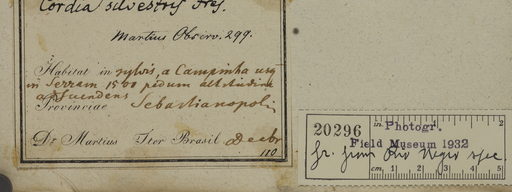 Cordia silvestris Fres.
Martius Observ. 299.
Habitat in sylvis, a Campinha usq
in Serram 1500 pedum altitudine
adscendens
Provinciae Sebastianopoli
Dr Martius Iter Brasil Decbr
20296
in.
Photogr.
Field Museum 1932
fr. from Rio Negro spec.
cm. 1 2 3 4 5